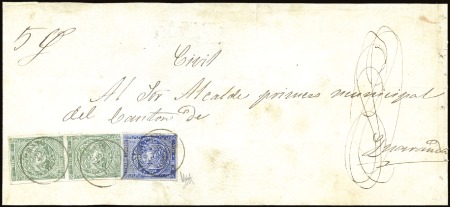 Civil
Al Sor Alcalde primero municipal
del Canton de
Guaranda